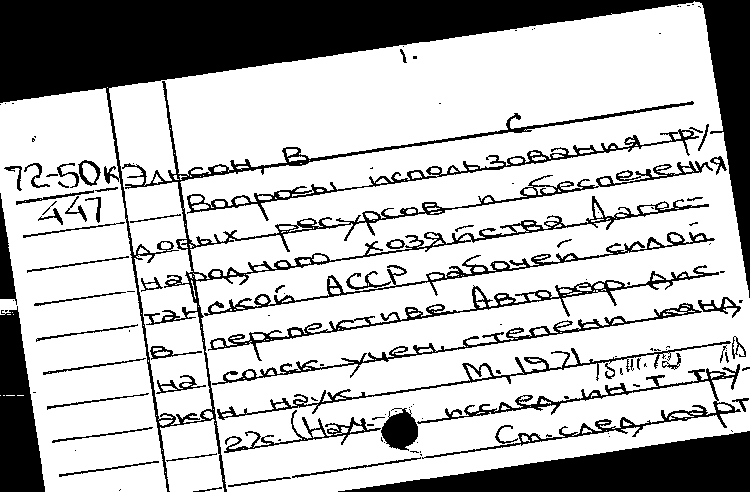 1.
72-50к Эльсон, В С
447 Вопросы использования тру-
довых ресурсов и обеспечения
народного хозяйства Дагес-
танской АССР рабочей силой
в перспективе. Автореф. дис.
на соиск. учен. степени канд.
экон. наук. М., 1971.
27с. (Науч.- исслед. ин-т тру-
См. след. карт